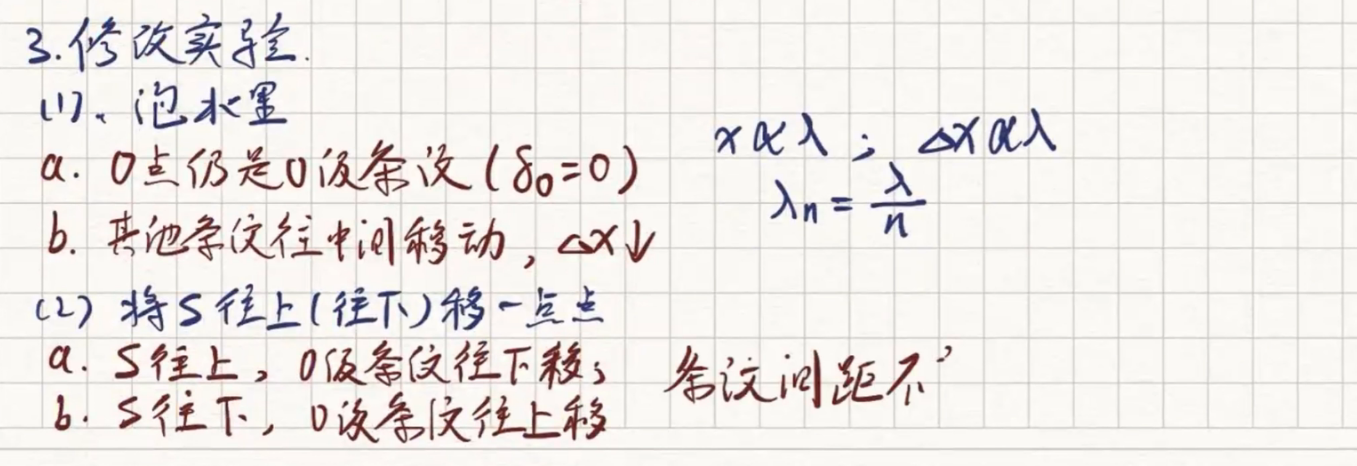 3.修改实验.
(1)、泡水里
a. O点仍是0级条纹(δ₀=0)
x∝λ; Δx∝λ
λn = λ/n
b. 其他条纹往中间移动, Δx↓
(2) 将S往上(往下)移一点点
a. S往上, 0级条纹往下移;
b. S往下, 0级条纹往上移
条纹间距不